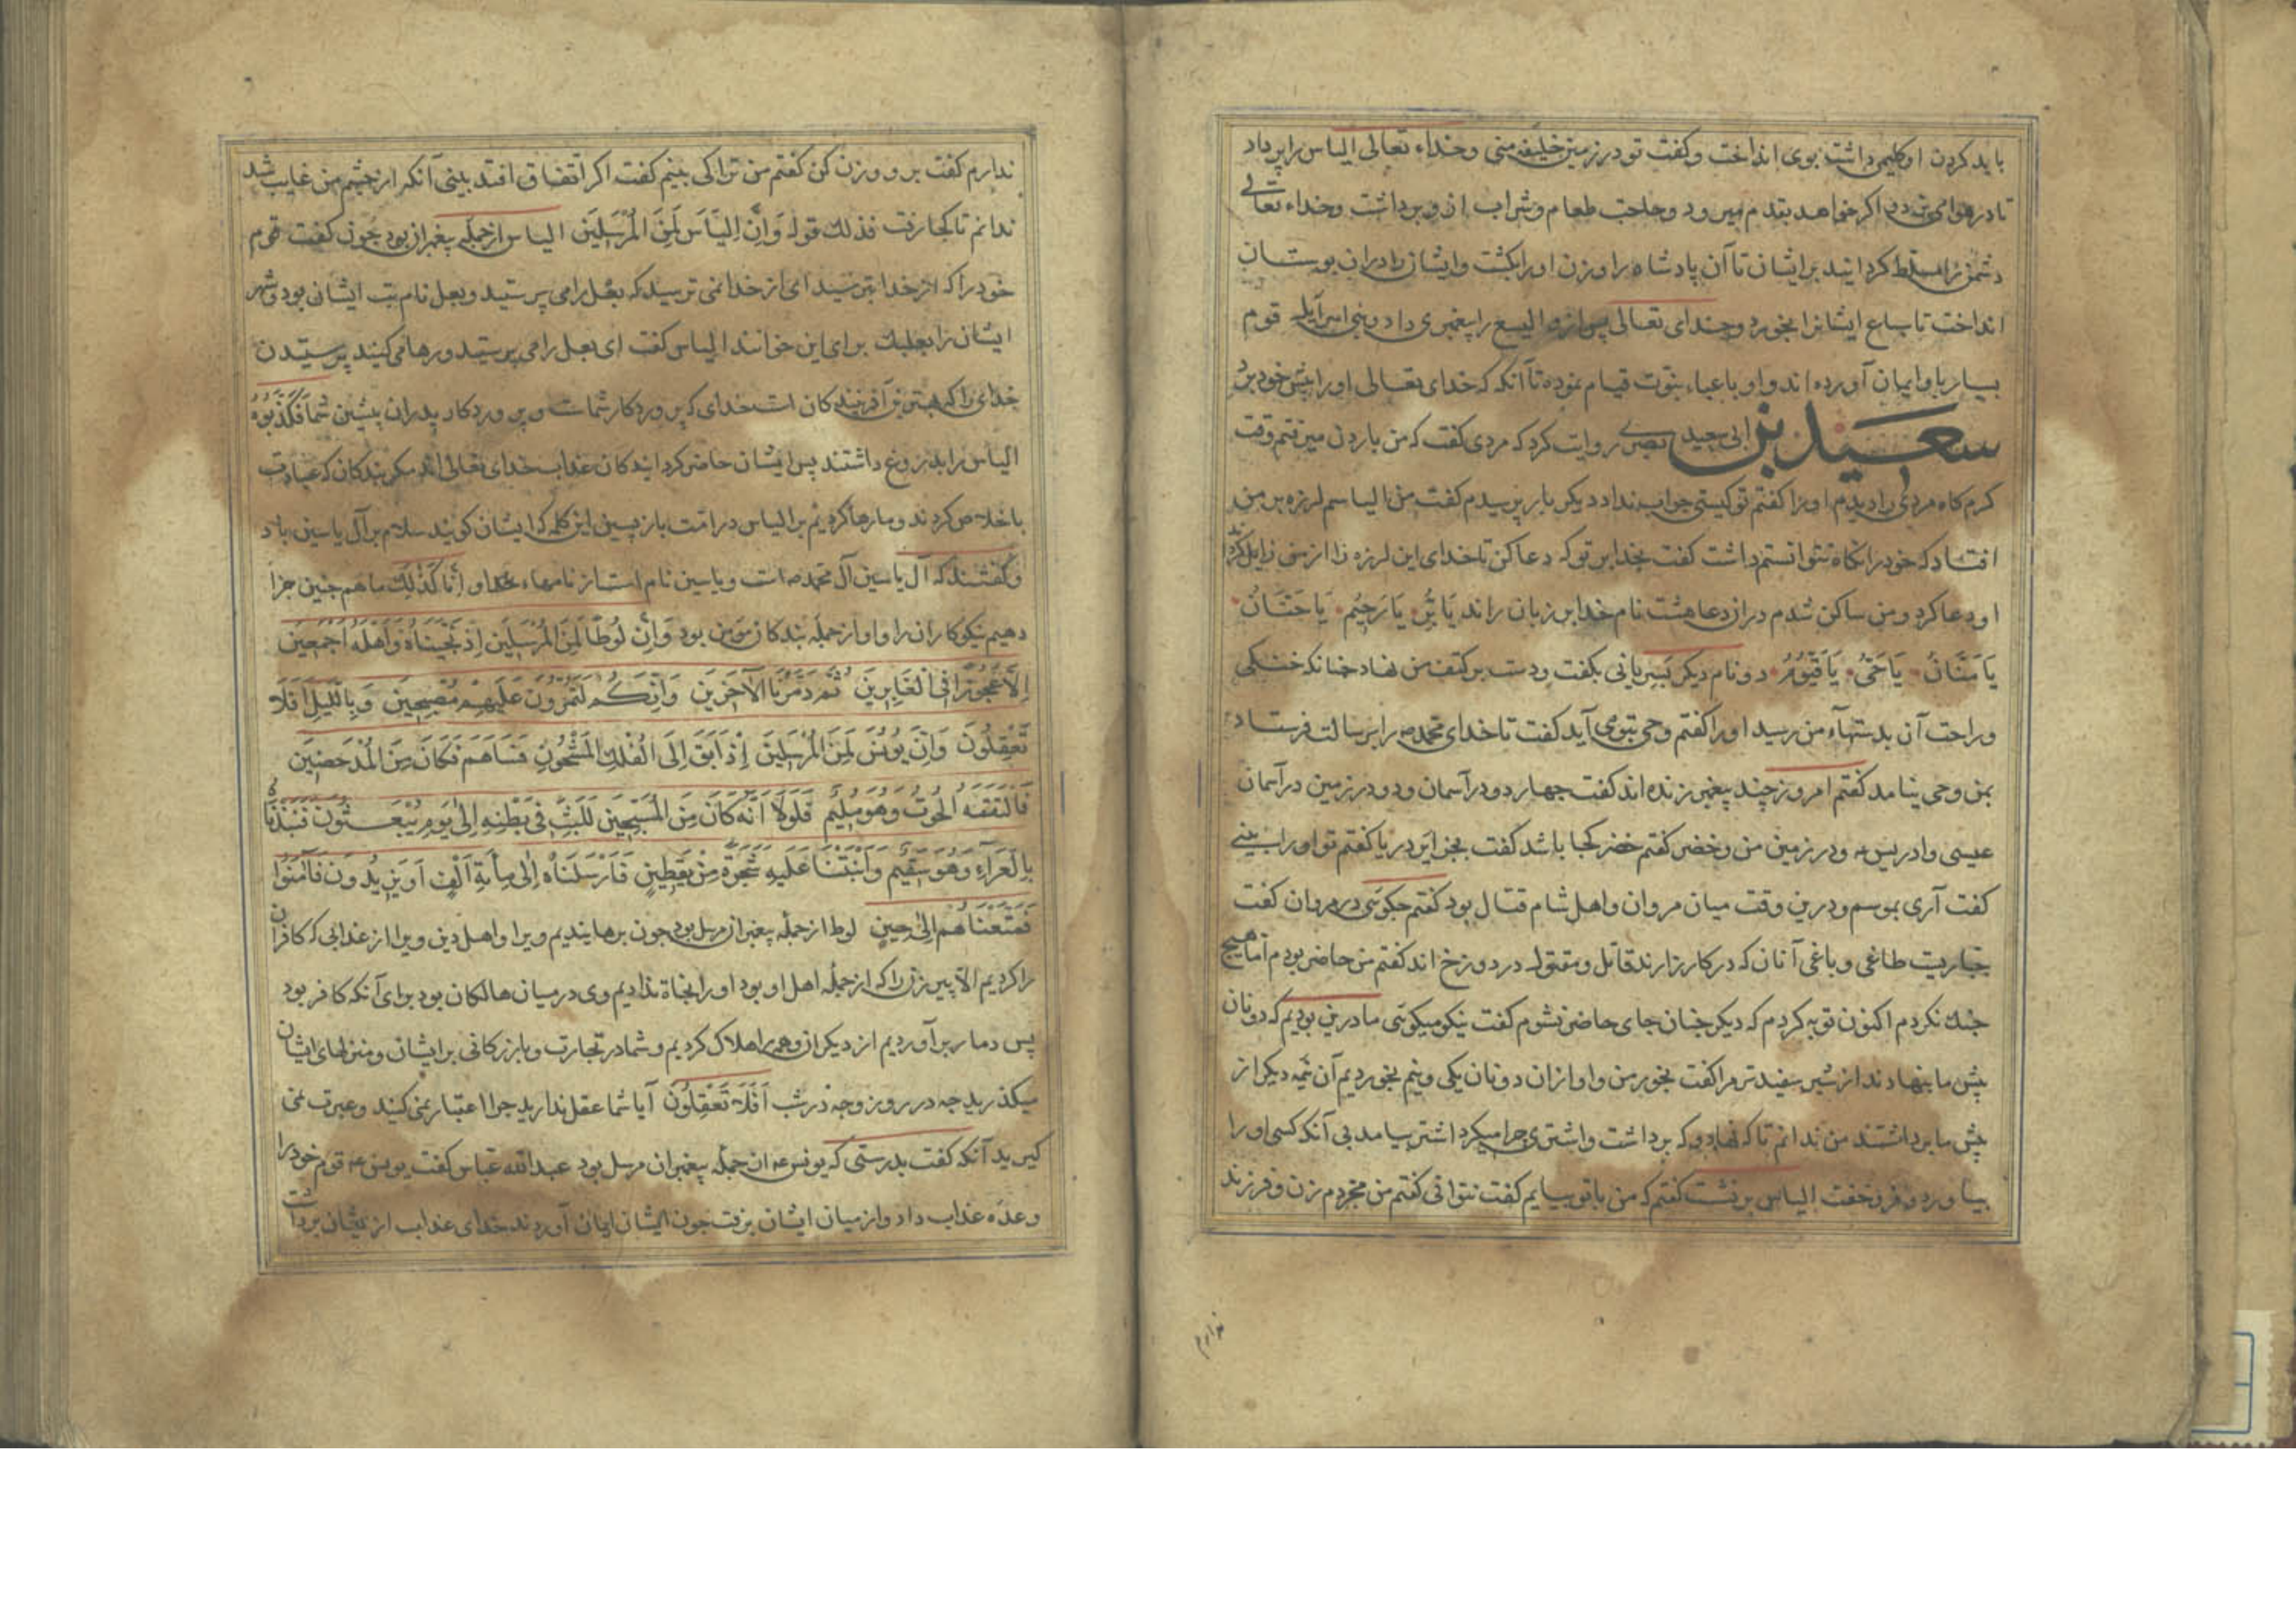 باید کردن او کلیمی داشت بوی انداخت و کفت تو در زمین خلیفه منی و خداء تعالی الیاس را پر داد
تا در هوا می برد اکر خواهد بقدم میرود و حاجت طعام و شراب از و برداشت و خداء تعالی
دشمن را مسلط کردانید بر ایشان تا آن پادشاه را و زن او را بکشت و ایشان را در آن بوستان
انداخت تا سباع ایشانرا بخورد و خدای تعالی پس ازو الیسع را پیغمبری داد و بنی اسرآیل قوم
بسیار باو ایمان آورده اند و او باعباء نبوت قیام نموده تا آنکه که خدای تعالی او را پیش خود برد
سعید بن ابی سعید بصری روایت کرد که مردی کفت که من باردن میرفتم وقت
کرم کاه مردی را دیدم او را کفتم تو کیستی جواب نداد دیکر بار پرسیدم کفت من الیاسم لرزه بر من
افتاد که خود را نکاه نتوانستم داشت کفت بخدا بر تو که دعا کن تا خدای این لرزه را از من زایل کرداند
او دعا کرد و من ساکن شدم در آن دعا هشت نام خدا بر زبان راند یَا بَرُّ یَا رَحِیُم یَا حَنَّانُ
یَا مَنَّانُ یَا حَیُّ یَا قَیُّوُمُ دو نام دیکر بسریانی بکفت و دست بر کتف من نهاد چنانکه خنکی
و راحت آن بدستهآء من رسید او را کفتم وحی بتو می آید کفت تا خدای محمد ص را برسالت فرستاد
بمن وحی نیامد کفتم امروز چند پیغمبر زنده اند کفت چهار دو در آسمان و دو در زمین در آسمان
عیسی و ادریس و در زمین من و خضر کفتم خضر کجا باشد کفت بجزایر دریا کفتم تو او را بینی
کفت آری بموسم و درین وقت میان مروان و اهل شام قتال بود کفتم چکوئی در مروان کفت
جباریت طاغی و باغی آنان که در کارزارند قاتل و مقتول در دوزخ اند کفتم من حاضر بودم اما هیچ
جنك نکردم اکنون توبه کردم که دیکر چنان جای حاضر نشوم کفت نیکو میکوئی ما درین بودیم که دو نان
پیش ما بنهادند از شیر سفیدتر مرا کفت بخور من و او از آن دو نان یکی و نیم بخوردیم آن نیمه دیکر از
پیش ما برداشتند من ندانم تا که نهاد و که برداشت و اشتری چرا میکرد اشتر بیامد بی آنکه کسی او را
بیاورد و فرو خفت الیاس بر نشست کفتم که من با تو بیایم کفت نتوانی کفتم من مجردم زن و فرزند
ندارم
ندارم کفت برو و زن کن کفتم من ترا کی بینم کفت اکر اتفاق افتد بینی آنکه از چشم من غایب شد
ندانم تا کجا رفت فذلك قوله وَاِنَّ اِلیَاسَ لَمِنَ الْمُرْسَلِیَن الیاس از جمله پیغمبران بود چون کفت قوم
خود را که از خدا بترسید ای از خدا نمی ترسید که بعل را می پرستید و بعل نام بت ایشان بود و شهر
ایشان را بعلبك برای این خوانند الیاس کفت ای بعل را می پرستید و رها می کنید پرستیدن
خدای را که بهترین آفرینندکان است خدای که پروردکار شماست و پروردکار پدران پیشین شما فَکَذَّبُوُهُ
الیاس را بدروغ داشتند پس ایشان حاضر کردایندکان عذاب خدای تعالی اند مکر بندکان که عبادت
باخلاص کردند و ما رها کردیم بر الیاس در امت باز پسین این کلمه که ایشان کویند سلام بر آل یاسین باد
و کفتند که آل یاسین آل محمد ص است و یاسین نام است از نامهاء خدا و اِنَّا کَذٰلِكَ ما هم چنین جزا
دهیم نیکوکاران را و او از جمله بندکان مؤمن بود وَاِنَّ لُوطًا لَمِنَ الْمُرْسَلِیَن اِذْ نَجَّیْنَاهُ وَاَهْلَهُ اَجْمَعِیَن
اِلَّا عَجُوزًا فِی الْغَابِرِیَن ثُمَّ دَمَّرْنَا الْاٰخَرِیَن وَاِنَّکُمْ لَتَمُرُّوُنَ عَلَیْهِمْ مُصْبِحِیَن وَبِاللَّیْلِ اَفَلَا
تَعْقِلُونَ وَاِنَّ یُونُسَ لَمِنَ الْمُرْسَلِیَن اِذْ اَبَقَ اِلَی الْفُلْكِ الْمَشْحُونِ فَسَاهَمَ فَکَانَ مِنَ الْمُدْحَضِیَن
فَالْتَقَمَهُ الْحُوتُ وَهُوَ مُلِیُمٌ فَلَوْلَا اَنَّهُ کَانَ مِنَ الْمُسَبِّحِیَن لَلَبِثَ فِی بَطْنِهِ اِلٰی یَوْمِ یُبْعَثُونَ فَنَبَذْنَاهُ
بِالْعَرَاءِ وَهُوَ سَقِیُمٌ وَاَنْبَتْنَا عَلَیْهِ شَجَرَةً مِنْ یَقْطِیٍن فَاَرْسَلْنَاهُ اِلٰی مِاْئَةِ اَلْفٍ اَوْ یَزِیدُونَ فَاٰمَنُوا
فَمَتَّعْنَاهُمْ اِلٰی حِیٍن لوط از جمله پیغمبران مرسل بود چون برهانیدیم ویرا و اهل دین ویرا از عذابی که کافران
را کردیم الا پیر زنی را که از جمله اهل او بود او را نجاة ندادیم وی در میان هالکان بود برای آنکه کافر بود
پس دمار برآوردیم از دیکران و همه را هلاك کردیم و شما در تجارت و بازرکانی بر ایشان و منزلهای ایشان
میکذرید چه در روز و چه در شب اَفَلَا تَعْقِلُوُنَ آیا شما عقل ندارید چرا اعتبار نمی کنید و عبرت نمی
کیرید آنکه کفت بدرستی که یونس از جمله پیغمبران مرسل بود عبدالله عباس کفت یونس قوم خود را
وعده عذاب داد و از میان ایشان برفت چون ایشان ایمان آوردند خدای عذاب از یشان برداشت